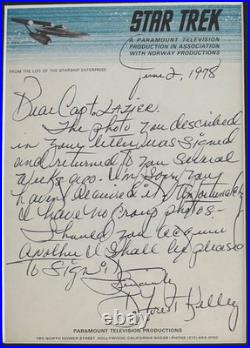 STAR TREK
A PARAMOUNT TELEVISION
PRODUCTION IN ASSOCIATION
WITH NORWAY PRODUCTIONS
FROM THE LOG OF THE STARSHIP ENTERPRISE
June 2, 1978
Dear Capt.
The photo you described
in your letter was signed
and returned to you several
weeks ago. I'm sorry you
haven't received it. Unfortunately
I have no photos.
Should you acquire
another I shall be pleased
to sign it
Sincerely
Kelley
PARAMOUNT TELEVISION PRODUCTIONS
780 NORTH GOWER STREET HOLLYWOOD, CALIFORNIA 90038